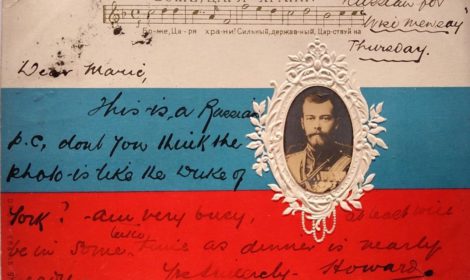 БОЖЕ, ЦАРЯ ХРАНИ
Russian for
Бо-же, Ца-ря хра-ни! Сильный, державный, Цар-ствуй на
Thursday.
Dear Marie,
This is a Russian
p.c, dont you think the
photo is like the Duke of
York? - am very busy, at least will
be in some time as dinner is nearly
Yrs sincerely Howard.